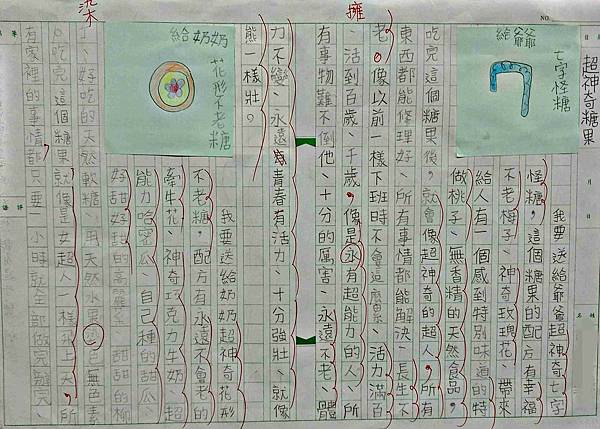 NO.
超神奇糖果
給爺爺
七字怪糖
我要送給爺爺超神奇七字
怪糖，這個糖果的配方有幸福
不老梅子、神奇玫瑰花、帶來
給人有一個感到特別味道的特
做桃子、無香精的天然食品，
吃完這個糖果後，就會像超神奇的超人，所有
東西都能修理好、所有事情都能解決、長生不
老。像以前一樣下班時不會這麼累、活力滿百
、活到百歲、千歲，像是永有超能力的人、所
擁
有事物難不倒他、十分的厲害、永遠不老、體
力不變、永遠青春有活力、十分強壯、就像
熊一樣壯。
給奶奶
花形不老糖
我要送給奶奶超神奇花形
不老糖，配方有永遠不會老的
牽牛花、神奇巧克力牛奶、超
能力哈密瓜、自己種的甜瓜、
好甜好甜的高麗菜、甜甜的柳
丁、好吃的天然軟糖、用天然水果色無色素
染
。吃完這個糖果就像是女超人一樣升上天，所
有家裡的事情都只要一小時就全部做完